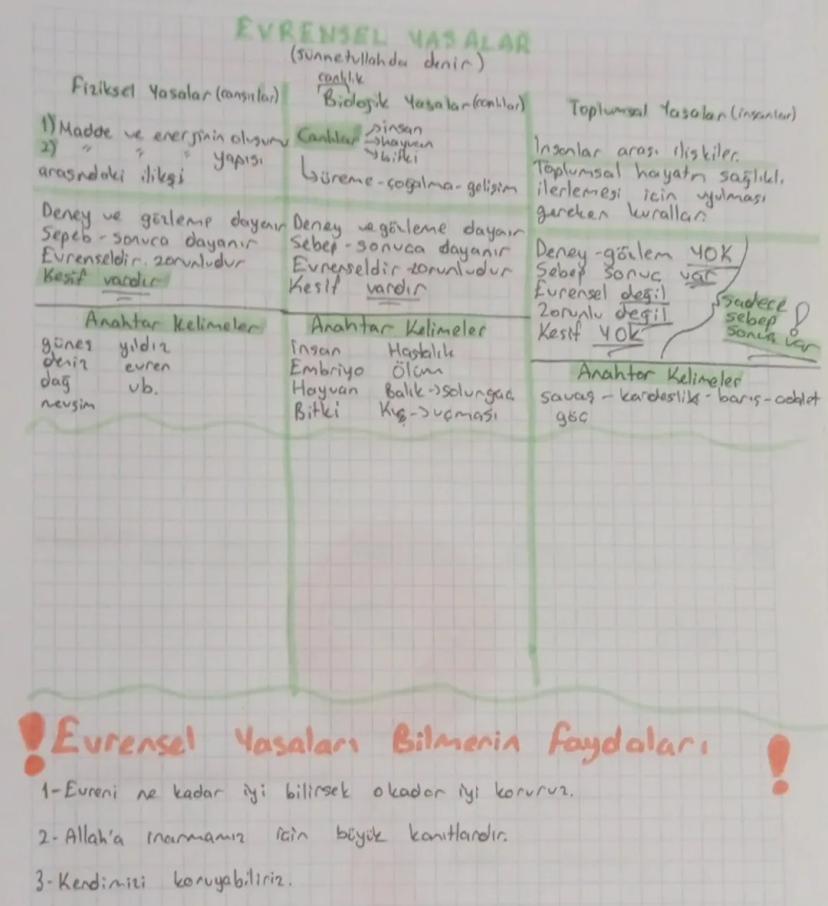 EVRENSEL YASALAR
(sünnetullahda denir)
Fiziksel Yasalar (cansızlar)
1) Madde ve enerjinin oluşumu
2) " " " yapısı
arasındaki ilikşi
Deney ve gözleme dayanır
Sepeb - sonuca dayanır
Evrenseldir. zorunludur
Keşif vardır
Anahtar Kelimeler
güneş yıldız
deniz evren
dağ vb.
mevsim
canlılık
Biolojik Yasalar (canlılar)
Canlılar →insan
→hayvan
→bitki
↳üreme-çoğalma-gelişim
Deney ve gözleme dayanır
Sebep - sonuca dayanır
Evrenseldir-zorunludur
Keşif vardır
Anahtar Kelimeler
İnsan Hastalık
Embriyo Ölüm
Hayvan Balık->solungaç
Bitki Kuş->uçması
Toplumsal Yasalar (insanlar)
İnsanlar arası ilişkiler.
Toplumsal hayatın sağlıklı
ilerlemesi için uyulması
gereken kurallar.
Deney -gözlem YOK
Sebep Sonuç var
Evrensel değil
Zorunlu değil
Keşif YOK
sadece
sebep
sonuç var !
Anahtar Kelimeler
savaş - kardeşlik - barış - adalet
göç
! Evrensel Yasaları Bilmenin Faydaları !
1-Evreni ne kadar iyi bilirsek okadar iyi koruruz.
2- Allah'a inanmamız için büyük kanıtlandır.
3-Kendimizi koruyabiliriz.